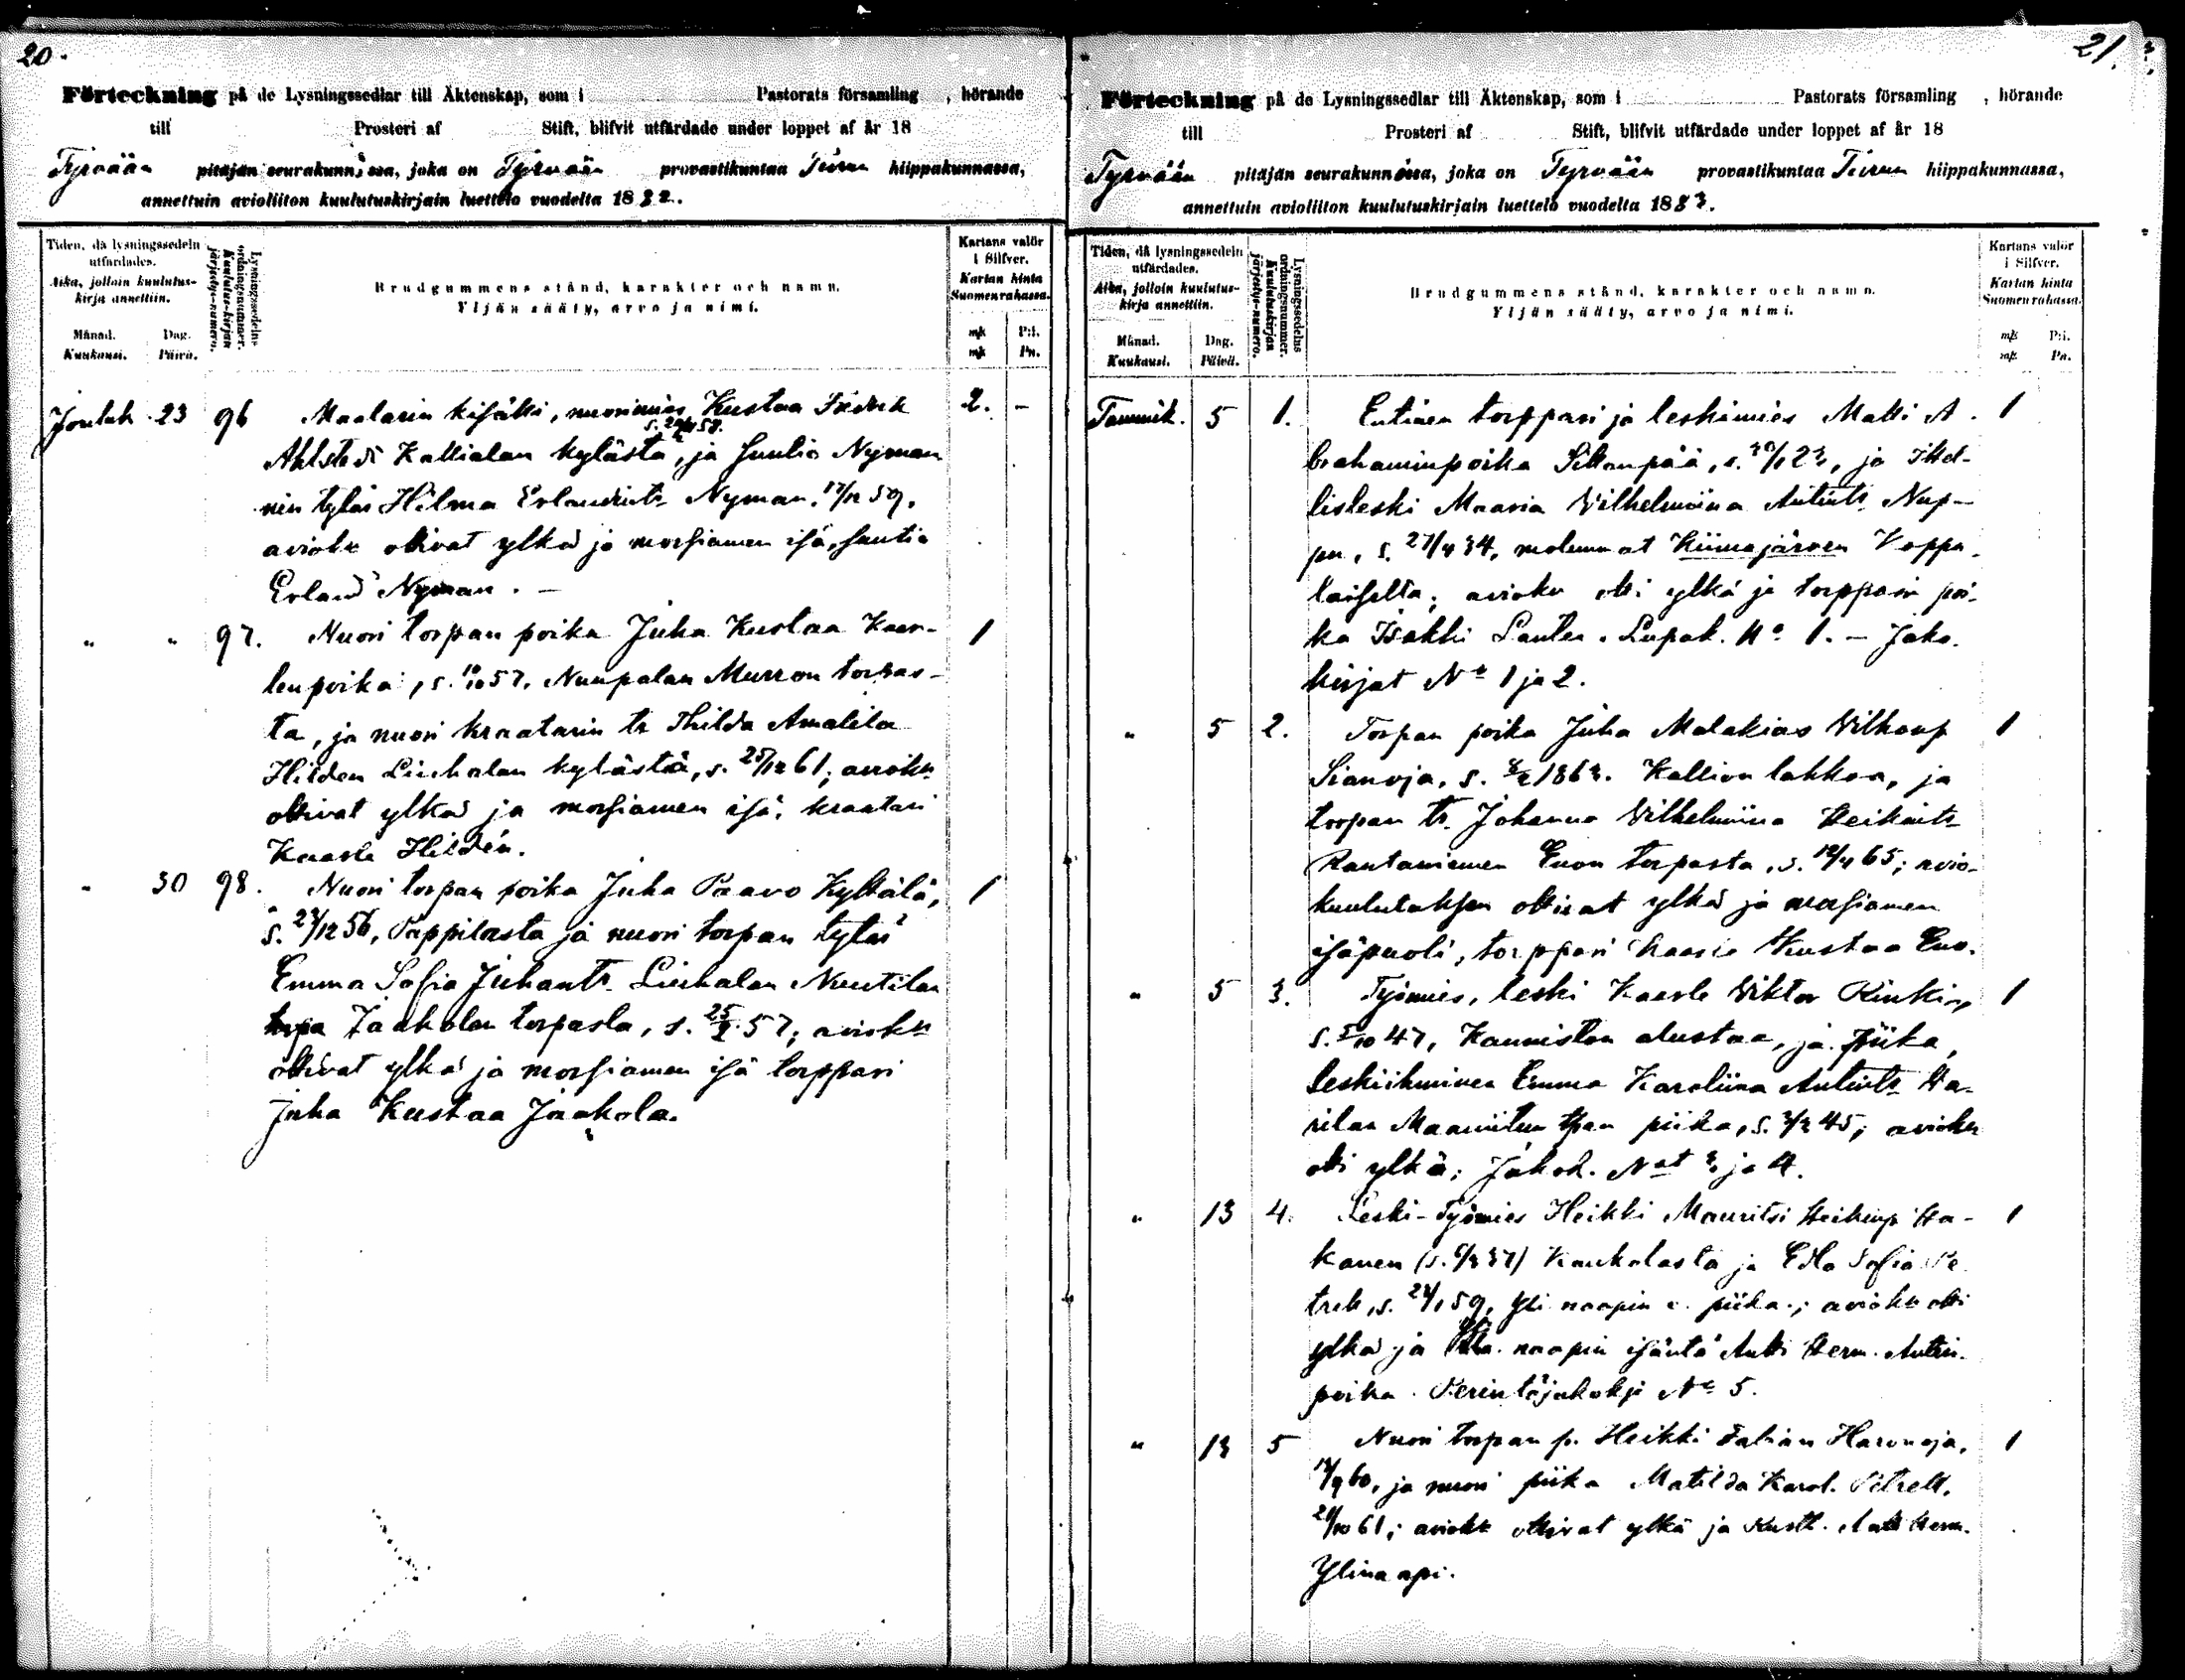 20.
Förteckning på de Lysningssedlar till Äktenskap, som i Pastorats församling , hörande
till Prosteri af Stift, blifvit utfärdade under loppet af år 18
Tyrvään pitäjän seurakunnissa, joka on Tyrvään provastikuntaa Turun hiippakunnassa,
annettuin avioliiton kuulutuskirjain luettelo vuodelta 1882.
Tiden, då lysningssedeln utfärdades.
Aika, jolloin kuulutus-kirja annettiin.
Månad. Dag.
Kuukausi. Päivä.
Lysningssedelns ordningsnummer.
Kuulutus-kirjan järjestys-numero.
Brudgummens stånd, karakter och namn.
Yljän sääty, arvo ja nimi.
Kartans valör i Silfver.
Kartan hinta Suomen rahassa.
mk Pi.
mk Pn.
Jouluk 23 96 Maalarin kisälli, nuorimies Kustaa Fredrik 2. -
Ahlstedt Kallialan kylästä, ja Suntio Nyman
nin tytär Hilma Erlandintr Nyman. 17/12 59.
aviokk ottivat ylkä ja morsiamen isä, suntio
Erland Nyman. —
" " 97. Nuori torpan poika Juha Kustaa Kaar- 1
lenpoika, s. 57. Nuupalan Murron torpas-
ta, ja nuori kraatarin tr Hilda Amalila
Hilden Liuhalan kylästä, s. 25/12 61; aviokk
ottivat ylkä ja morsiamen isä, kraatari
Kaarle Hildén.
" 30 98. Nuori torpan poika Juha Paavo Kyltälä, 1
s. 23/12 56, Pappilasta ja nuori torpan tytär
Emma Sofia Juhantr. Liuhalan Nuutilan
Jaakolan torpasta, s. 25/X 57; aviokk
ottivat ylkä ja morsiamen isä torppari
Juha Kustaa Jaakola.
21.
Förteckning på de Lysningssedlar till Äktenskap, som i Pastorats församling , hörande
till Prosteri af Stift, blifvit utfärdade under loppet af år 18
Tyrvään pitäjän seurakunnissa, joka on Tyrvään provastikuntaa Turun hiippakunnassa,
annettuin avioliiton kuulutuskirjain luettelo vuodelta 1883.
Tiden, då lysningssedeln utfärdades.
Aika, jolloin kuulutus-kirja annettiin.
Månad. Dag.
Kuukausi. Päivä.
Lysningssedelns ordningsnummer.
Kuulutuskirjan järjestys-numero.
Brudgummens stånd, karakter och namn.
Yljän sääty, arvo ja nimi.
Kartans valör i Silfver.
Kartan hinta Suomen rahassa.
mk Pi.
mk Pn.
Tammik. 5 1. Entinen torppari ja leskimies Matti A- 1
brahaminpoika Siltanpää, s. 30/1 23, ja Itsel-
lisleski Maaria Vilhelmiina Antintr. Nup-
pu, s. 27/4 34, molemmat Kiimajärven Koppa-
laiselta; aviokk otti ylkä ja torpparin poi-
ka Isakki Lauten. Lupak. No 1. — Jako-
kirjat No 1 ja 2.
" 5 2. Torpan poika Juha Malakias Vilhanp 1
Sianoja, s. 1863. Kallion lahkoa, ja
torpan tr. Johanna Vilhelmiina Heikintr
Rantaniemen Euon torpasta, s. 12/4 65; avio-
kuulutuksen ottivat ylkä ja morsiamen
isäpuoli, torppari Kaarle Kustaa Euo.
" 5 3. Työmies, leski Kaarle Viktor Rinki, 1
s. 5/10 47, Kanniston alustaa, ja Piika,
leskiihminen Emma Karoliina Antintr. Ha-
rilan Maanniitun tpan piika, s. 45; aviokk
otti ylkä; Jakok. Not 3 ja 4.
" 13 4. Leski-Työmies Heikki Mauritsi Heikinp Ha- 1
kanen (s. 37) Kaukolasta ja Edla Sofia Pe
trell, s. 24/1 59, Yli naapin piika; aviokk otti
ylkä ja naapin isäntä Antti Herm. Antin-
poika. Perintöjakokj No 5.
" 13 5 Nuori torpan p. Heikki Fabian Haronoja, 1
60, ja nuori piika Matilda Karol. Petrell,
61; aviokk ottivat ylkä ja Rustt. Antti Herm.
Ylinaapi.